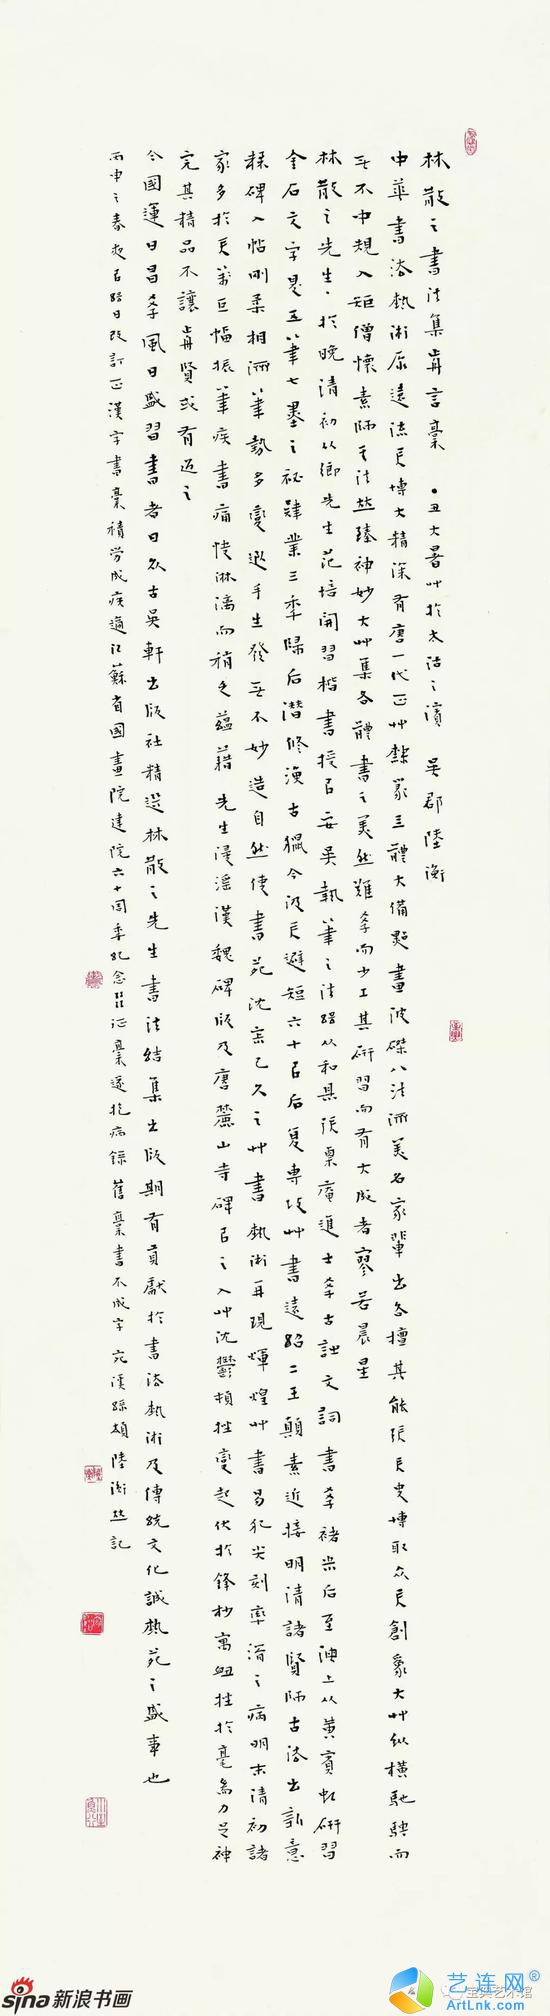 林散之书法集前言稾 丑大暑艸於太沽之滨 吴郡陸衡
中華書法執術原遠流長博大精深有唐一代正艸隸篆三體大備點畫波磔八法兩美名家輩出各擅其能張長史博取众長創象大艸纵横馳騁而
无不中規入矩僧懷素師其法並臻神妙大艸集各體書之美然難學而少工其研習而有大成者寥若晨星
林散之先生於晚清初从鄉先生范培開習楷書授㠯安吴執筆之法踪从和县張栗庵進士學古詩文詞書學褚米后至沪上从黄賓虹研習
金石文字是五筆七墨之祕肄業三季歸后潛修漁古獵今汲長避短六十㠯后复專攻艸書遠紹二王顛素近接明清諸賢師古法出新意
糅碑入帖刚柔相济筆勢多變遐手生發无不妙造自然使書苑沈寂已久之艸書執術再現煇煌艸書易犯尖刻率滑之病明末清初諸
家多於長巨幅振筆疾書痛快淋漓而稍乏蕴藉先生浸淫漢魏碑版及唐麓山寺碑㠯之入艸沈鬱頓挫變起伏於鋒杪寓屈挫於毫为力足神
完其精品不讓前賢或有过之
今國運日昌學風日盛習書者日众古吴軒出版社精選林散之先生書法結集出版期有貢獻於書法執術及傳統文化誠執苑之盛事也
丙申之春 改訂正漢字書稾積勞成疾適江蘇省國畫院建院六十周季纪念 征稾遂抱病錄舊稾書不成字 陸衡並記
sina新浪书画
艺连网®
ArtLnk.com
宝典艺术馆